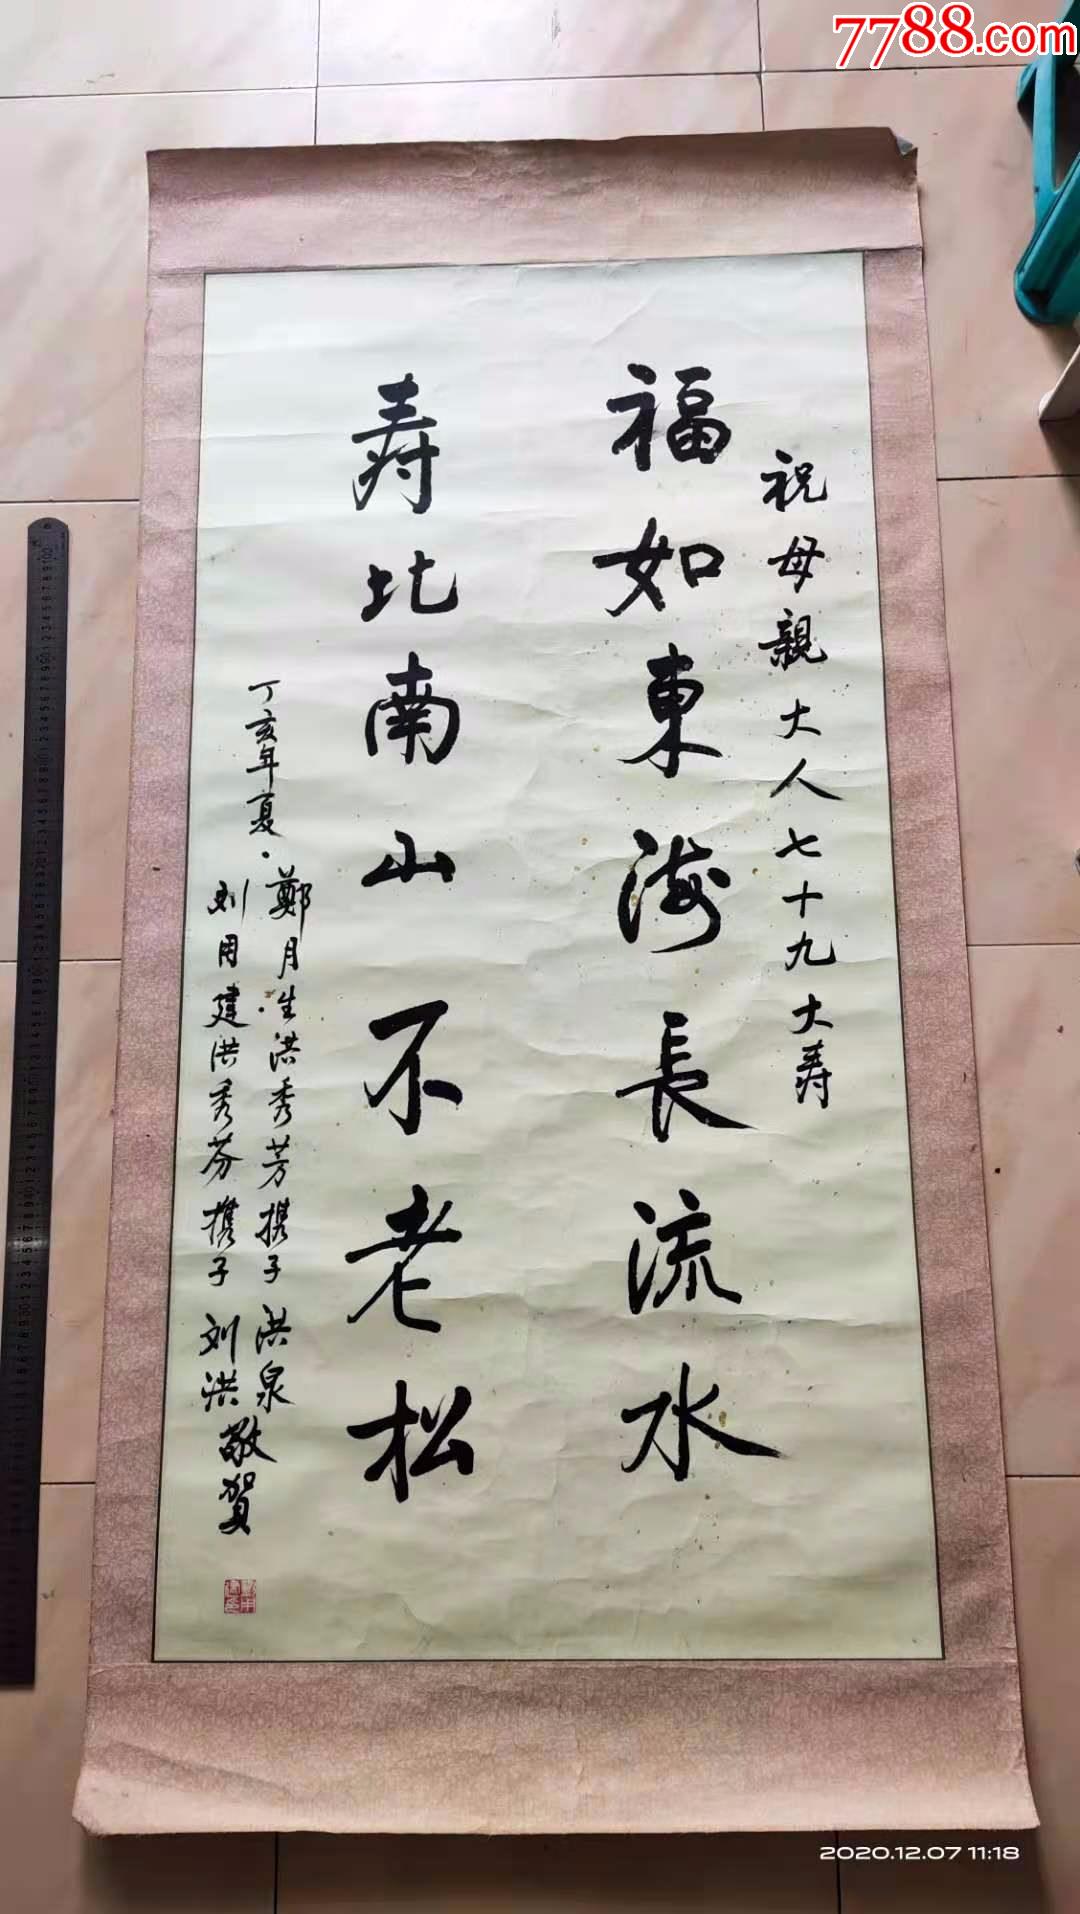 7788.com
祝母親大人七十九大寿
福如東海長流水
寿比南山不老松
丁亥年夏
鄭月生洪秀芳携子洪泉
刘用建洪秀芬携子刘洪
敬贺
2020.12.07 11:18